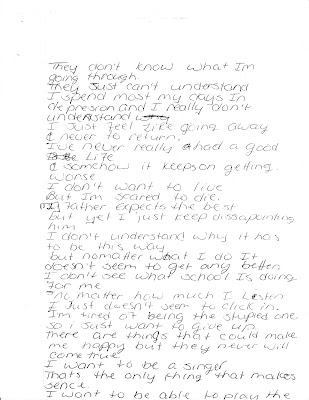 They don't know what Im
going through.
they Just can't understand
I spend most my days In
depresion and I really don't
understand why
I Just feel Like going away
& never to return.
I've never really had a good
Life
& somehow it keeps on getting
worse
I don't want to live
But Im scared to die.
My Father expects the best
but yet I just keep dissapointing
him
I don't understand why it has
to be this way
but nomatter what I do It
doesn't seem to get any better.
I don't see what school Is doing
for me
no matter how much I Listen
I Just doesn't seem to click in.
I'm tired of being the stupied one
so i Just want to give up.
There are things that could make
me happy but they never will
come true.
I want to be a singer
Thats the only thing that makes
sence.
I want to be able to play the